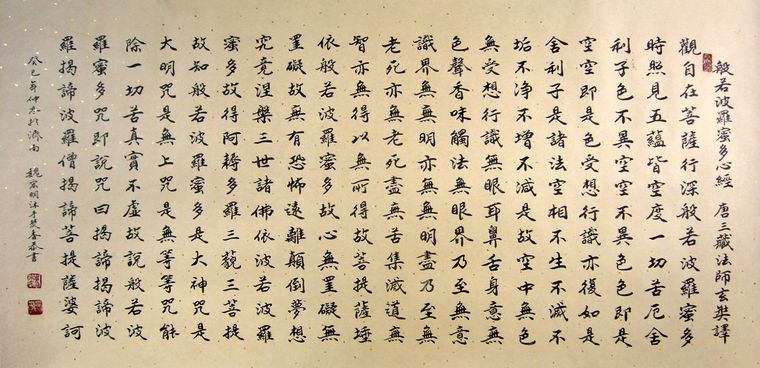 般若波羅蜜多心經 唐三藏法師玄奘譯
觀自在菩薩行深般若波羅蜜多
時照見五蘊皆空度一切苦厄舍
利子色不異空空不異色色即是
空空即是色受想行識亦復如是
舍利子是諸法空相不生不滅不
垢不净不增不減是故空中無色
無受想行識無眼耳鼻舌身意無
色聲香味觸法無眼界乃至無意
識界無無明亦無無明盡乃至無
老死亦無老死盡無苦集滅道無
智亦無得以無所得故菩提薩埵
依般若波羅蜜多故心無罣礙無
罣礙故無有恐怖遠離顛倒夢想
究竟涅槃三世諸佛依般若波羅
蜜多故得阿耨多羅三藐三菩提
故知般若波羅蜜多是大神咒是
大明咒是無上咒是無等等咒能
除一切苦真實不虛故說般若波
羅蜜多咒即說咒曰揭諦揭諦波
羅揭諦波羅僧揭諦菩提薩婆訶
癸巳年仲於濟南 魏宏明沐手焚香恭書